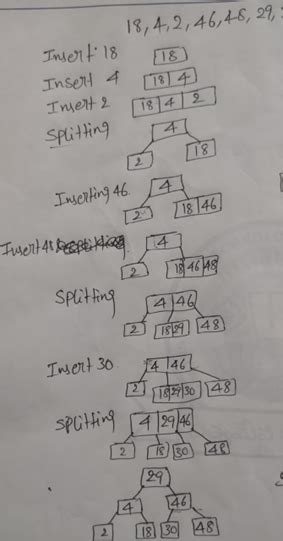 18, 4, 2, 46, 48, 29,
Insert 18
18
Insert 4
18 4
Insert 2
18 4 2
Splitting
4
2 18
Inserting 46
4
2 18 46
Insert 48
4
2 18 46 48
Splitting
4 46
2 18 29 48
Insert 30
4 46
2 18 29 30 48
Splitting
4 29 46
2 18 30 48
29
4 46
2 18 30 48